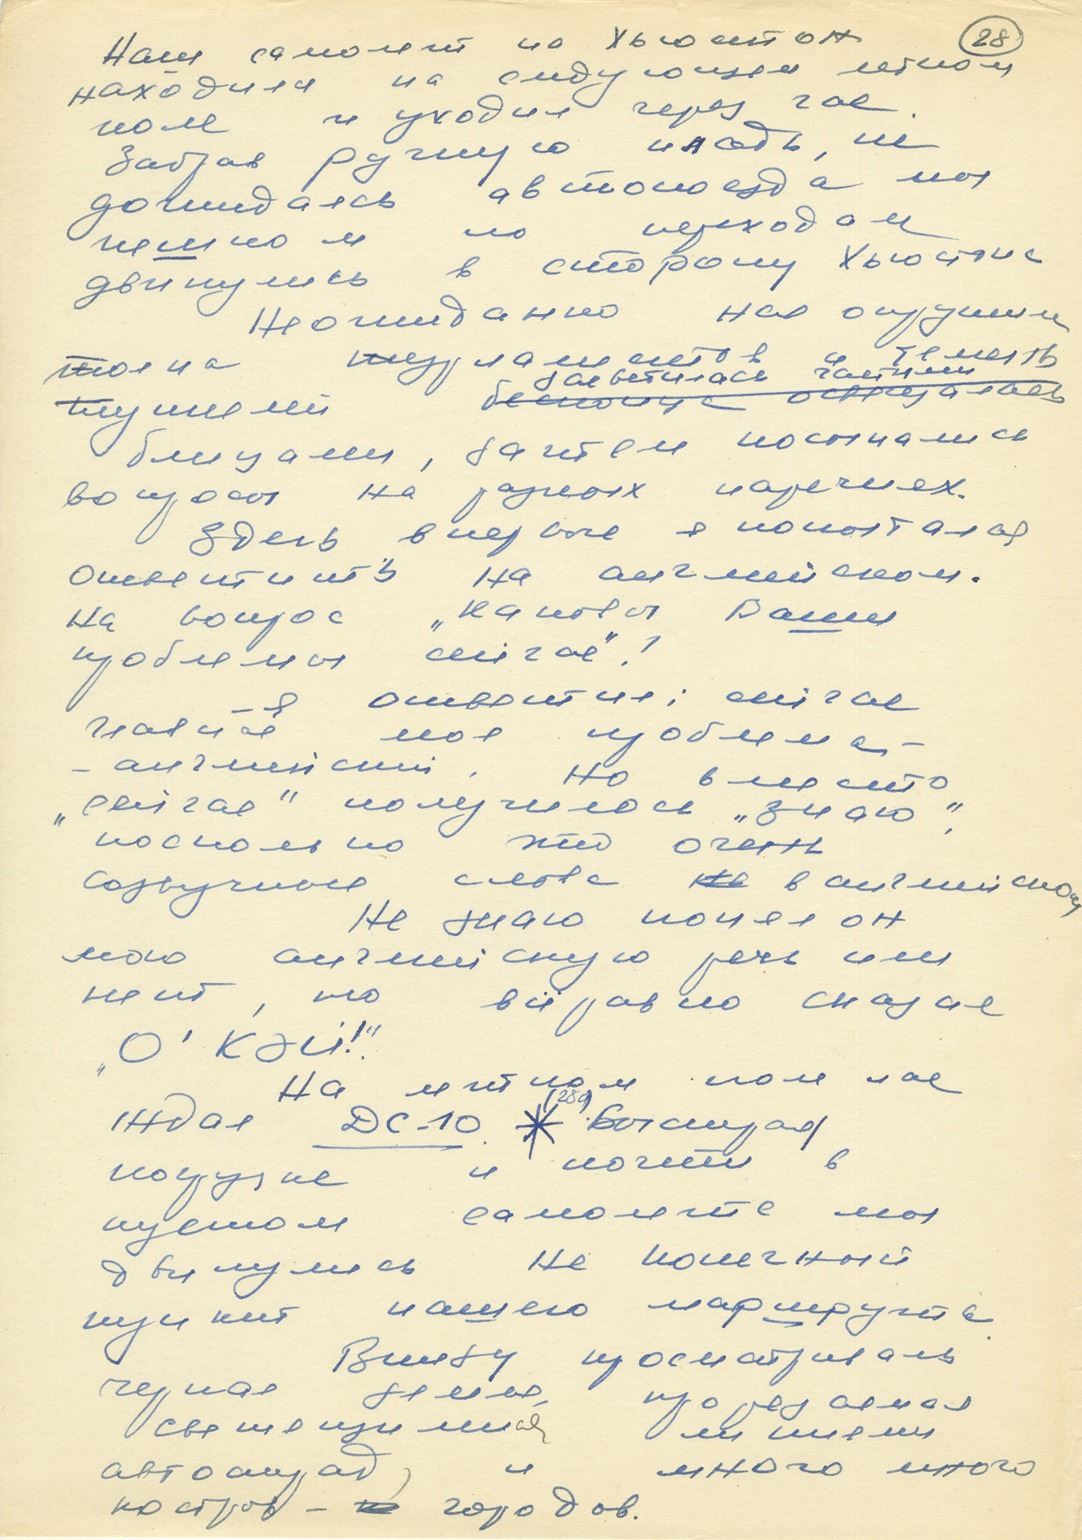 28
Наш самолет на Хьюстон
находился на следующем летном
поле и уходил через час.
Забрав ручную кладь, не
дожидаясь автопоезда мы
пешком по переходам
двинулись в сторону Хьюстона
Неожиданно нас окружили
толпа журналистов и темень
засветилась частыми
туннеля беспокойно освещалась
блицами, затем посыпались
вопросы на разных наречиях.
Здесь впервые я попытался
ответить на английском.
На вопрос „Каковы Ваши
проблемы сейчас"?
– Я ответил: сейчас
главная моя проблема –
– английский. Но вместо
„сейчас" получилось „знаю",
поскольку это очень
созвучные слова не в английском
Не знаю понял он
мою английскую речь или
нет, но всё равно сказал
„О' Кэй!".
На летном поле нас
(28а)
ждал ДС-10. * Быстрая
погрузка и почти в
пустом самолете мы
двинулись на конечный
пункт нашего маршрута.
Внизу просматривалась
черная земля, прорезаемая
светящимися линиями
автострад, и много много
костров – городов.